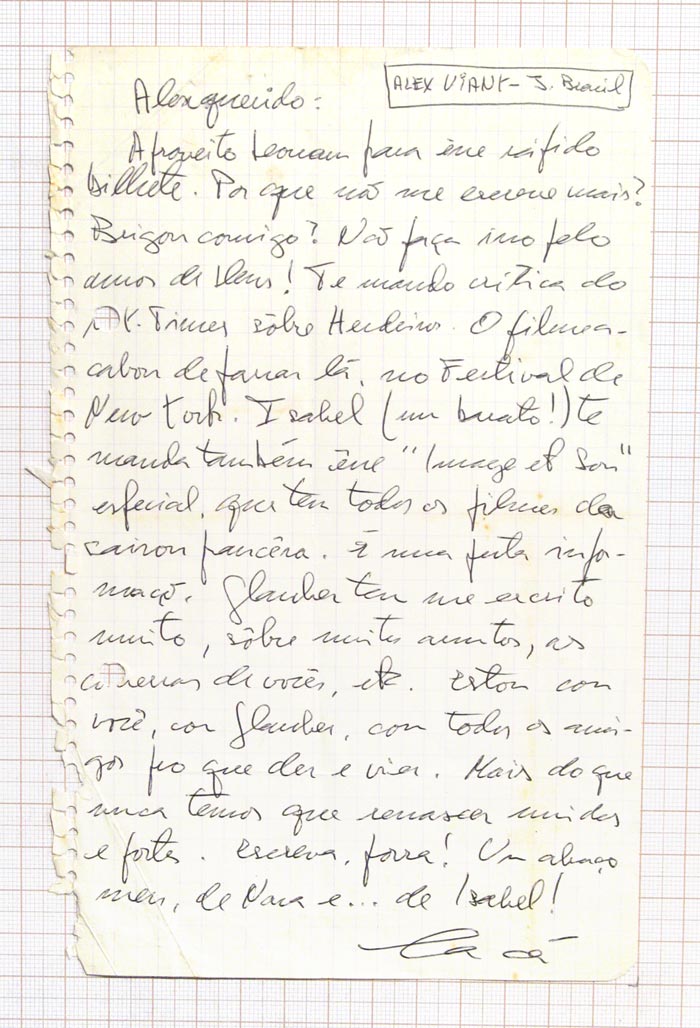 ALEX VIANY - J. Brasil
Alex querido:
Aproveito Leonam para êsse rápido
bilhete. Por que não me escreve mais?
Brigou comigo? Não faça isso pelo
amor de Deus! Te mando crítica do
NY. Times sôbre Herdeiros. O filme a-
cabou de passar lá, no Festival de
New York. Isabel (um barato!) te
manda também êsse "Image et Son"
especial, que tem todos os filmes da
saison francêsa. É uma puta infor-
mação. Glauber tem me escrito
muito, sôbre muitos assuntos, as
conversas de vocês, etc. Estou com
você, com Glauber, com todos os ami-
gos pro que der e vier. Mais do que
nunca temos que renascer unidos
e fortes. Escreva, porra! Um abraço
meu, de Nara e... de Isabel!
Cacá